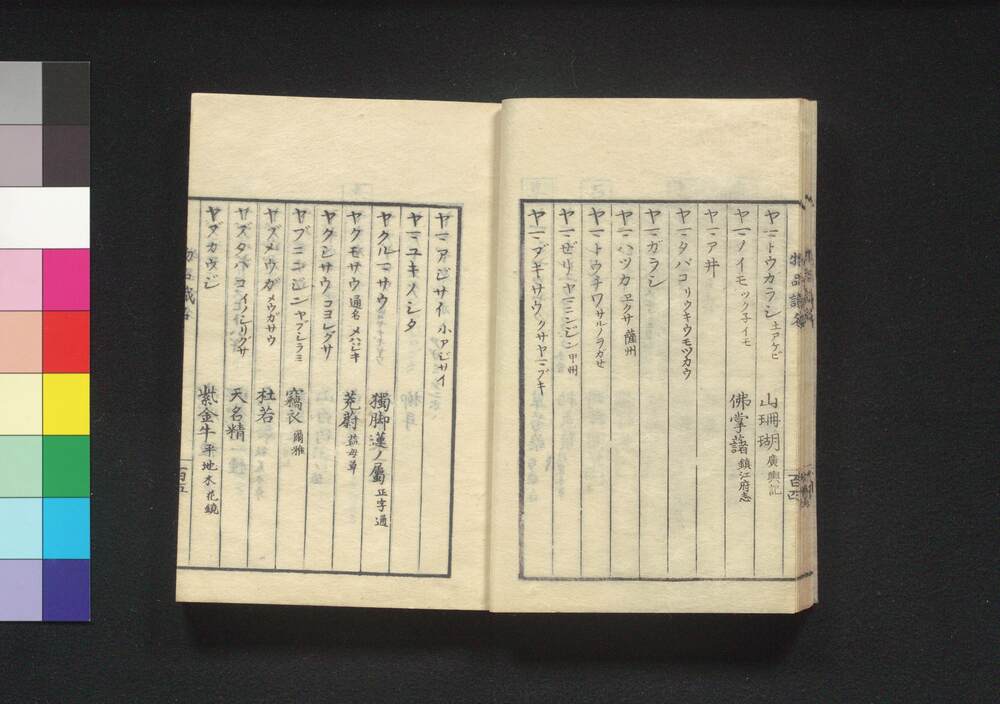 ヤマトウカラシ 土アケビ 山珊瑚 廣輿記
ヤマノイモ ツク子イモ 佛掌藷 鎮江府志
ヤマア井
ヤマタバコ リウキウモツカウ
ヤマガラシ
ヤマハツカ ヱクサ 薩州
ヤマトウチワ サルノラガせ
ヤマぜリ ヤマニンジン 甲州
ヤマブキサウ クサヤマブキ
ヤマアジサイ 小アジサイ
ヤマユキノシタ
ヤクルマサウ 獨脚蓮ノ屬 正字通
ヤクモサウ 通名 メハジキ 茺蔚 益母草
ヤクシサウ コヨレグサ
ヤブニンジン ヤブジラミ 竊衣 爾雅
ヤブメウガ メウガサウ 杜若
ヤブタバコ イノシリグサ 天名精
ヤブカウジ 紫金牛 平地木 花鏡
百五